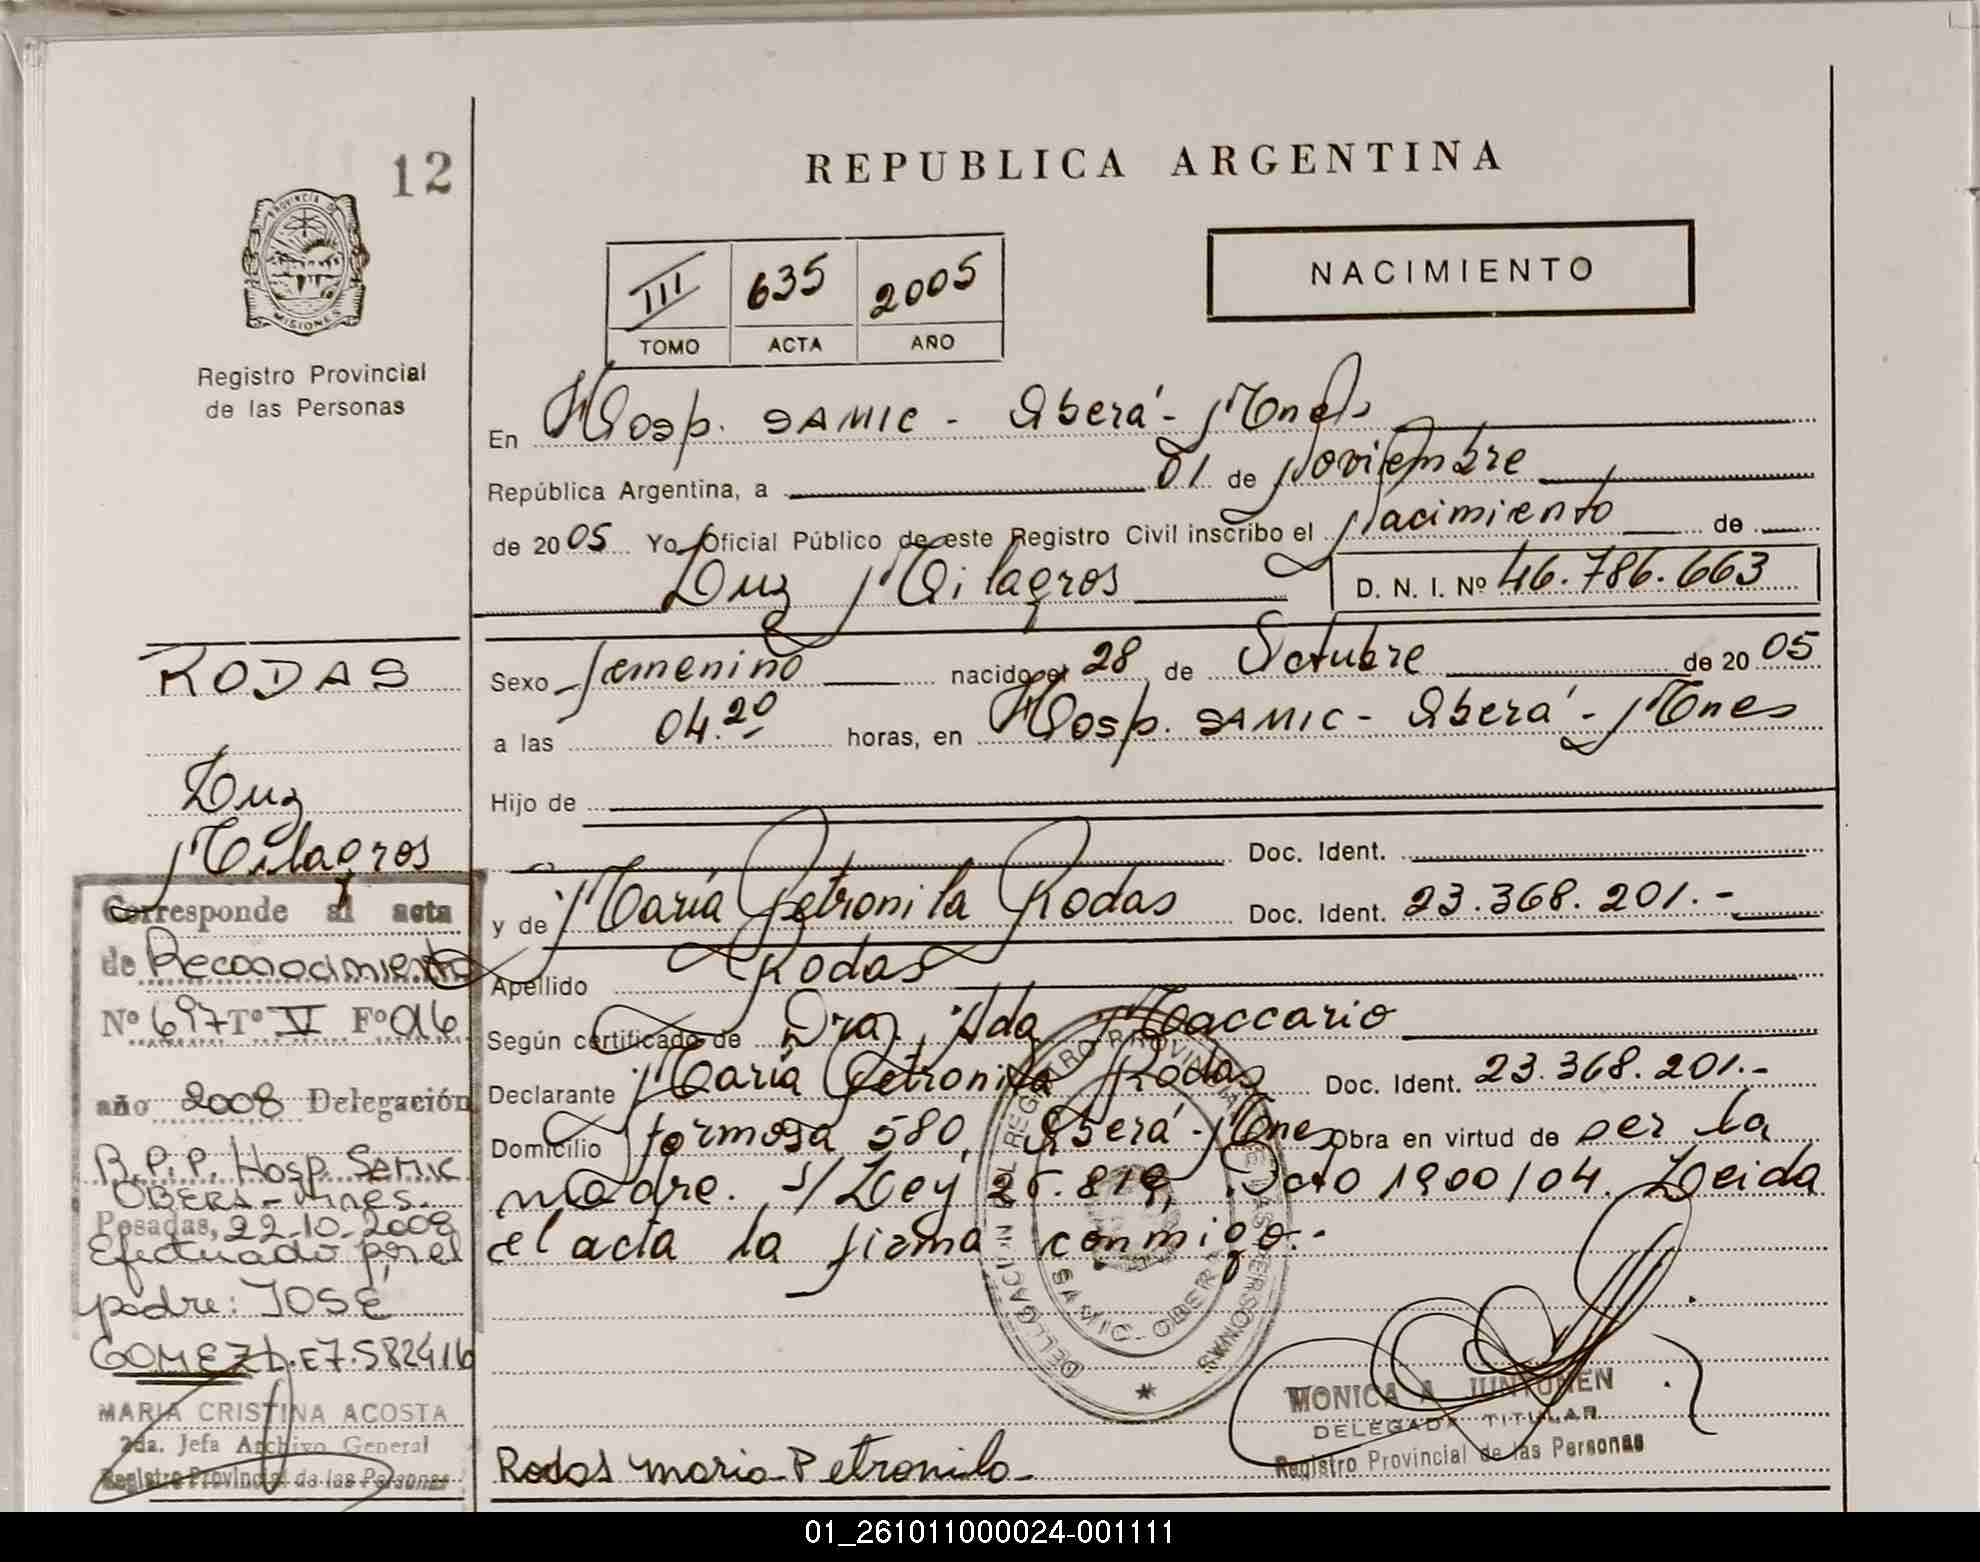 12
REPUBLICA ARGENTINA
PROVINCIA DE
MISIONES
Registro Provincial
de las Personas
III 635 2005
TOMO ACTA AÑO
NACIMIENTO
En Hosp. SAMIC - Oberá - Mnes
República Argentina, a 01 de Noviembre
de 2005 Yo Oficial Público de este Registro Civil inscribo el Nacimiento de
Luz Milagros D. N. I. Nº 46.786.663
Sexo femenino nacido el 28 de Octubre de 2005
a las 04.20 horas, en Hosp. SAMIC - Oberá - Mnes
Hijo de
Doc. Ident.
y de María Petronila Rodas Doc. Ident. 23.368.201.-
Apellido Rodas
Según certificado de Dra. Ada Maccario
Declarante María Petronila Rodas Doc. Ident. 23.368.201.-
Domicilio formosa 580, Oberá - Mnes Obra en virtud de ser la
madre. s/ Ley 25.819, Dcto 1900/04. Leida
el acta la firma conmigo.-
SAMIC - OBERA
MONICA A JUNTUNEN
DELEGADA TITULAR
Registro Provincial de las Personas
Rodas maria Petronila
RODAS
Luz
Milagros
Corresponde al acta
de Reconocimiento
Nº 697 Tº V Fº 016
año 2008 Delegación
R.P.P. Hosp. Samic
OBERA - Mnes.
Posadas, 22-10-2008
Efectuado por el
padre: JOSÉ
GOMEZ L.E 7.582416
MARIA CRISTINA ACOSTA
2da. Jefa Archivo General
Registro Provincial de las Personas
01_261011000024-001111